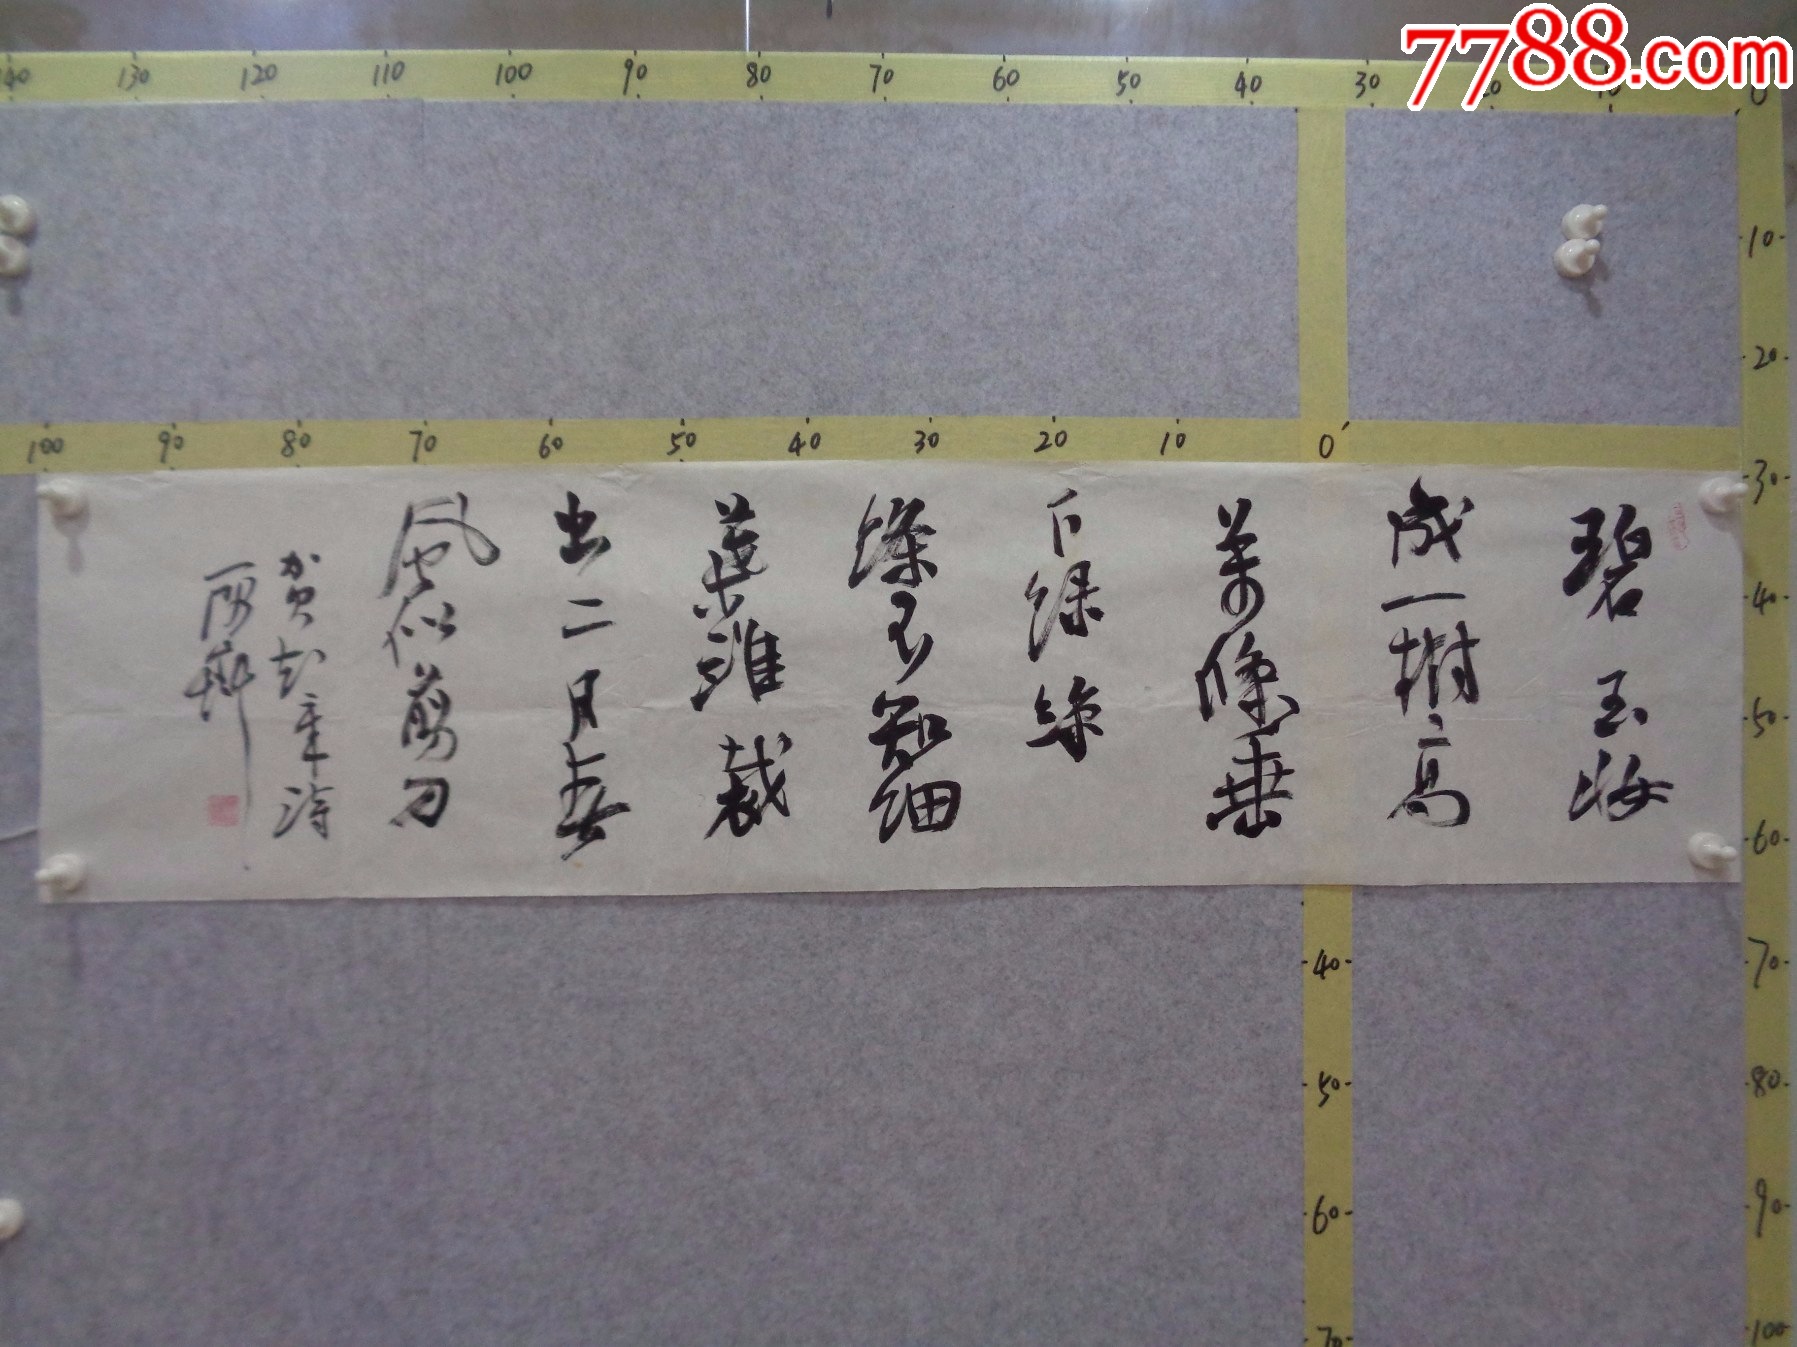 7788.com
140 130 120 110 100 90 80 70 60 50 40 30 20 10 0
100 90 80 70 60 50 40 30 20 10 0
10
20
30
40
50
60
70
80
90
100
40
50
60
70
碧玉妝
成一樹高
萬條垂
下綠絲
絛不知細
葉誰裁
出二月春
風似剪刀
賀知章詩